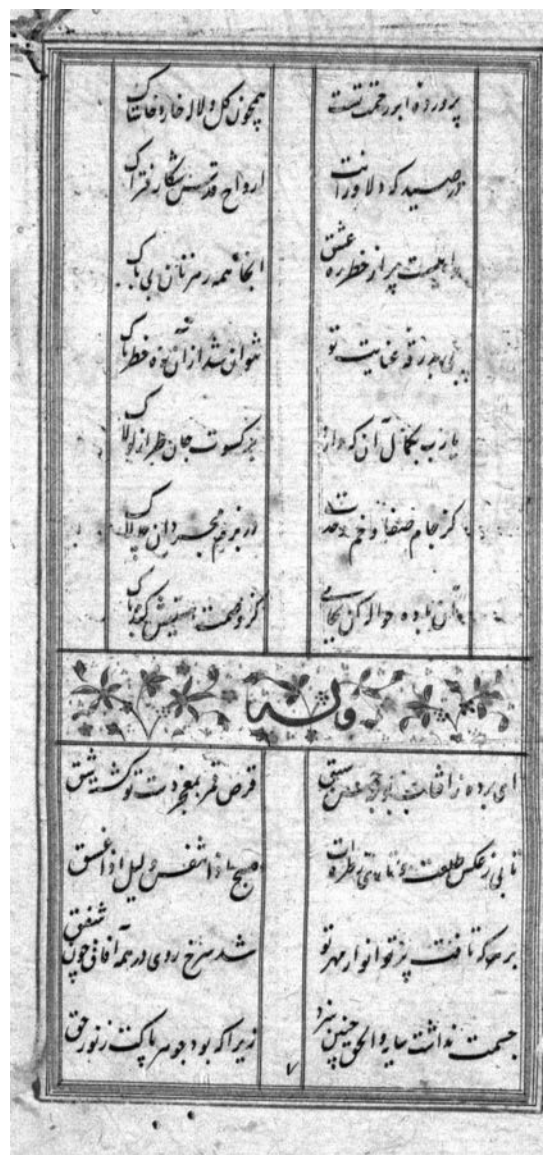 پرورده ابر رحمت تست
همچون گل و لاله خار و خاشاک
در صیدگه دلاورانت
ارواح قدس شکار فتراک
راهیست پر از خطر ره عشق
آنجا همه رهزنان بی باک
بی بدرقه عنایت تو
نتوان شد از آن ره خطرناک
یا رب بکمال آن که دارد
بزم مجردان چالاک
کز جام صفا و خم وحدت
آن باده حواله کن بجامی
کز وصمت هستیش کند پاک
وله
ای برده ز آفتاب بوجه حسن سبق
قرص قمر بمعجز دست تو گشته شق
تابی ز عکس طلعت و تاری ز طره ات
صبح اذا تنفس و لیل اذا غسق
بر هر که تافت پرتو انوار مهر تو
شد سرخ روی در همه آفاق چون شفق
جسمت نداشت سایه و الحق چنین سزد
زیرا که بود جوهر پاکت ز نور حق